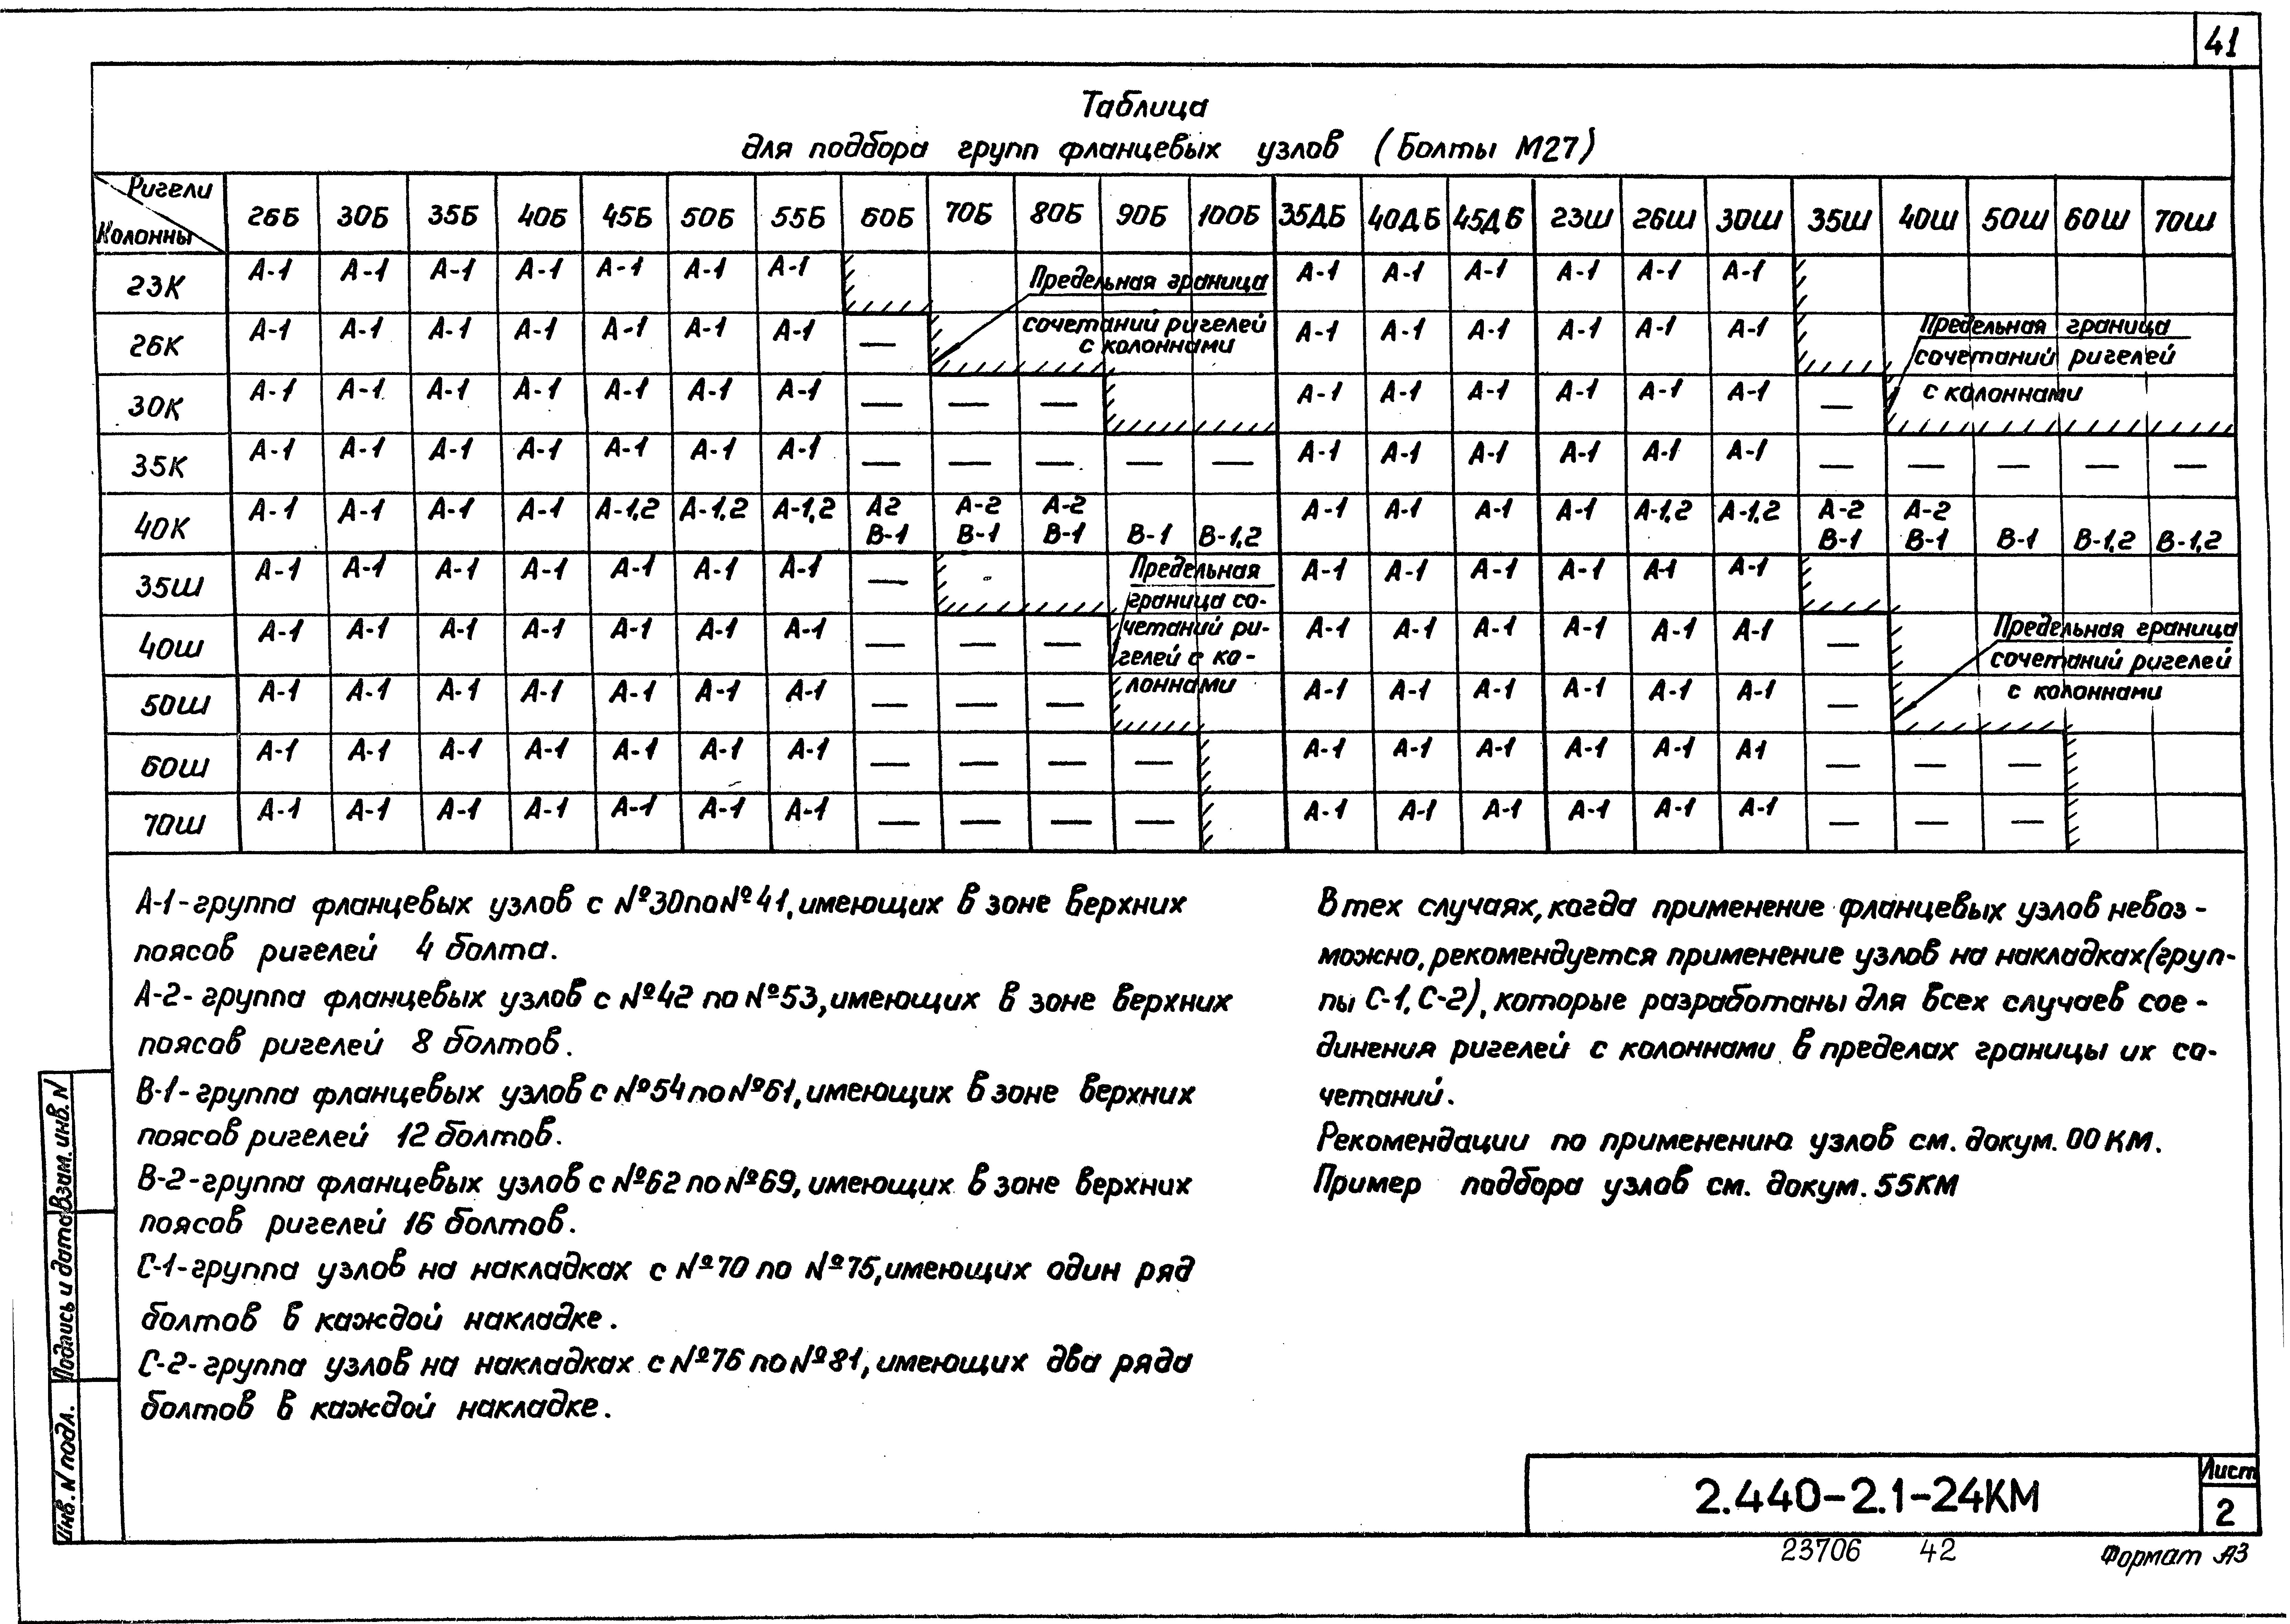 41
Таблица
для подбора групп фланцевых узлов (Болты М27)
Ригели
Колонны
26Б 30Б 35Б 40Б 45Б 50Б 55Б 60Б 70Б 80Б 90Б 100Б 35ДБ 40ДБ 45ДБ 23Ш 26Ш 30Ш 35Ш 40Ш 50Ш 60Ш 70Ш
23К А-1 А-1 А-1 А-1 А-1 А-1 А-1 А-1 А-1 А-1 А-1 А-1 А-1
Предельная граница
сочетаний ригелей
с колоннами
26К А-1 А-1 А-1 А-1 А-1 А-1 А-1 — А-1 А-1 А-1 А-1 А-1 А-1
Предельная граница
сочетаний ригелей
с колоннами
30К А-1 А-1 А-1 А-1 А-1 А-1 А-1 — — — А-1 А-1 А-1 А-1 А-1 А-1 —
35К А-1 А-1 А-1 А-1 А-1 А-1 А-1 — — — — — А-1 А-1 А-1 А-1 А-1 А-1 — — — — —
40К А-1 А-1 А-1 А-1 А-1,2 А-1,2 А-1,2 А2 А-2 А-2 А-1 А-1 А-1 А-1 А-1,2 А-1,2 А-2 А-2
В-1 В-1 В-1 В-1 В-1,2 В-1 В-1 В-1 В-1,2 В-1,2
35Ш А-1 А-1 А-1 А-1 А-1 А-1 А-1 — А-1 А-1 А-1 А-1 А-1 А-1
Предельная
граница со-
четаний ри-
гелей с ко-
лоннами
40Ш А-1 А-1 А-1 А-1 А-1 А-1 А-1 — — — А-1 А-1 А-1 А-1 А-1 А-1 —
Предельная граница
сочетаний ригелей
с колоннами
50Ш А-1 А-1 А-1 А-1 А-1 А-1 А-1 — — — А-1 А-1 А-1 А-1 А-1 А-1 —
60Ш А-1 А-1 А-1 А-1 А-1 А-1 А-1 — — — — А-1 А-1 А-1 А-1 А-1 А1 — — —
70Ш А-1 А-1 А-1 А-1 А-1 А-1 А-1 — — — — А-1 А-1 А-1 А-1 А-1 А-1 — — —
А-1-группа фланцевых узлов с №30 по №41, имеющих в зоне верхних
поясов ригелей 4 болта.
А-2-группа фланцевых узлов с №42 по №53, имеющих в зоне верхних
поясов ригелей 8 болтов.
В-1-группа фланцевых узлов с №54 по №61, имеющих в зоне верхних
поясов ригелей 12 болтов.
В-2-группа фланцевых узлов с №62 по №69, имеющих в зоне верхних
поясов ригелей 16 болтов.
С-1-группа узлов на накладках с №70 по №75, имеющих один ряд
болтов в каждой накладке.
С-2-группа узлов на накладках с №76 по №81, имеющих два ряда
болтов в каждой накладке.
В тех случаях, когда применение фланцевых узлов невоз-
можно, рекомендуется применение узлов на накладках (груп-
пы С-1, С-2), которые разработаны для всех случаев сое-
динения ригелей с колоннами в пределах границы их со-
четаний.
Рекомендации по применению узлов см. докум. 00КМ.
Пример подбора узлов см. докум. 55КМ
Взам. инв. N
Подпись и дата
Инв. N подл.
2.440-2.1-24КМ
Лист
2
23706 42
Формат А3